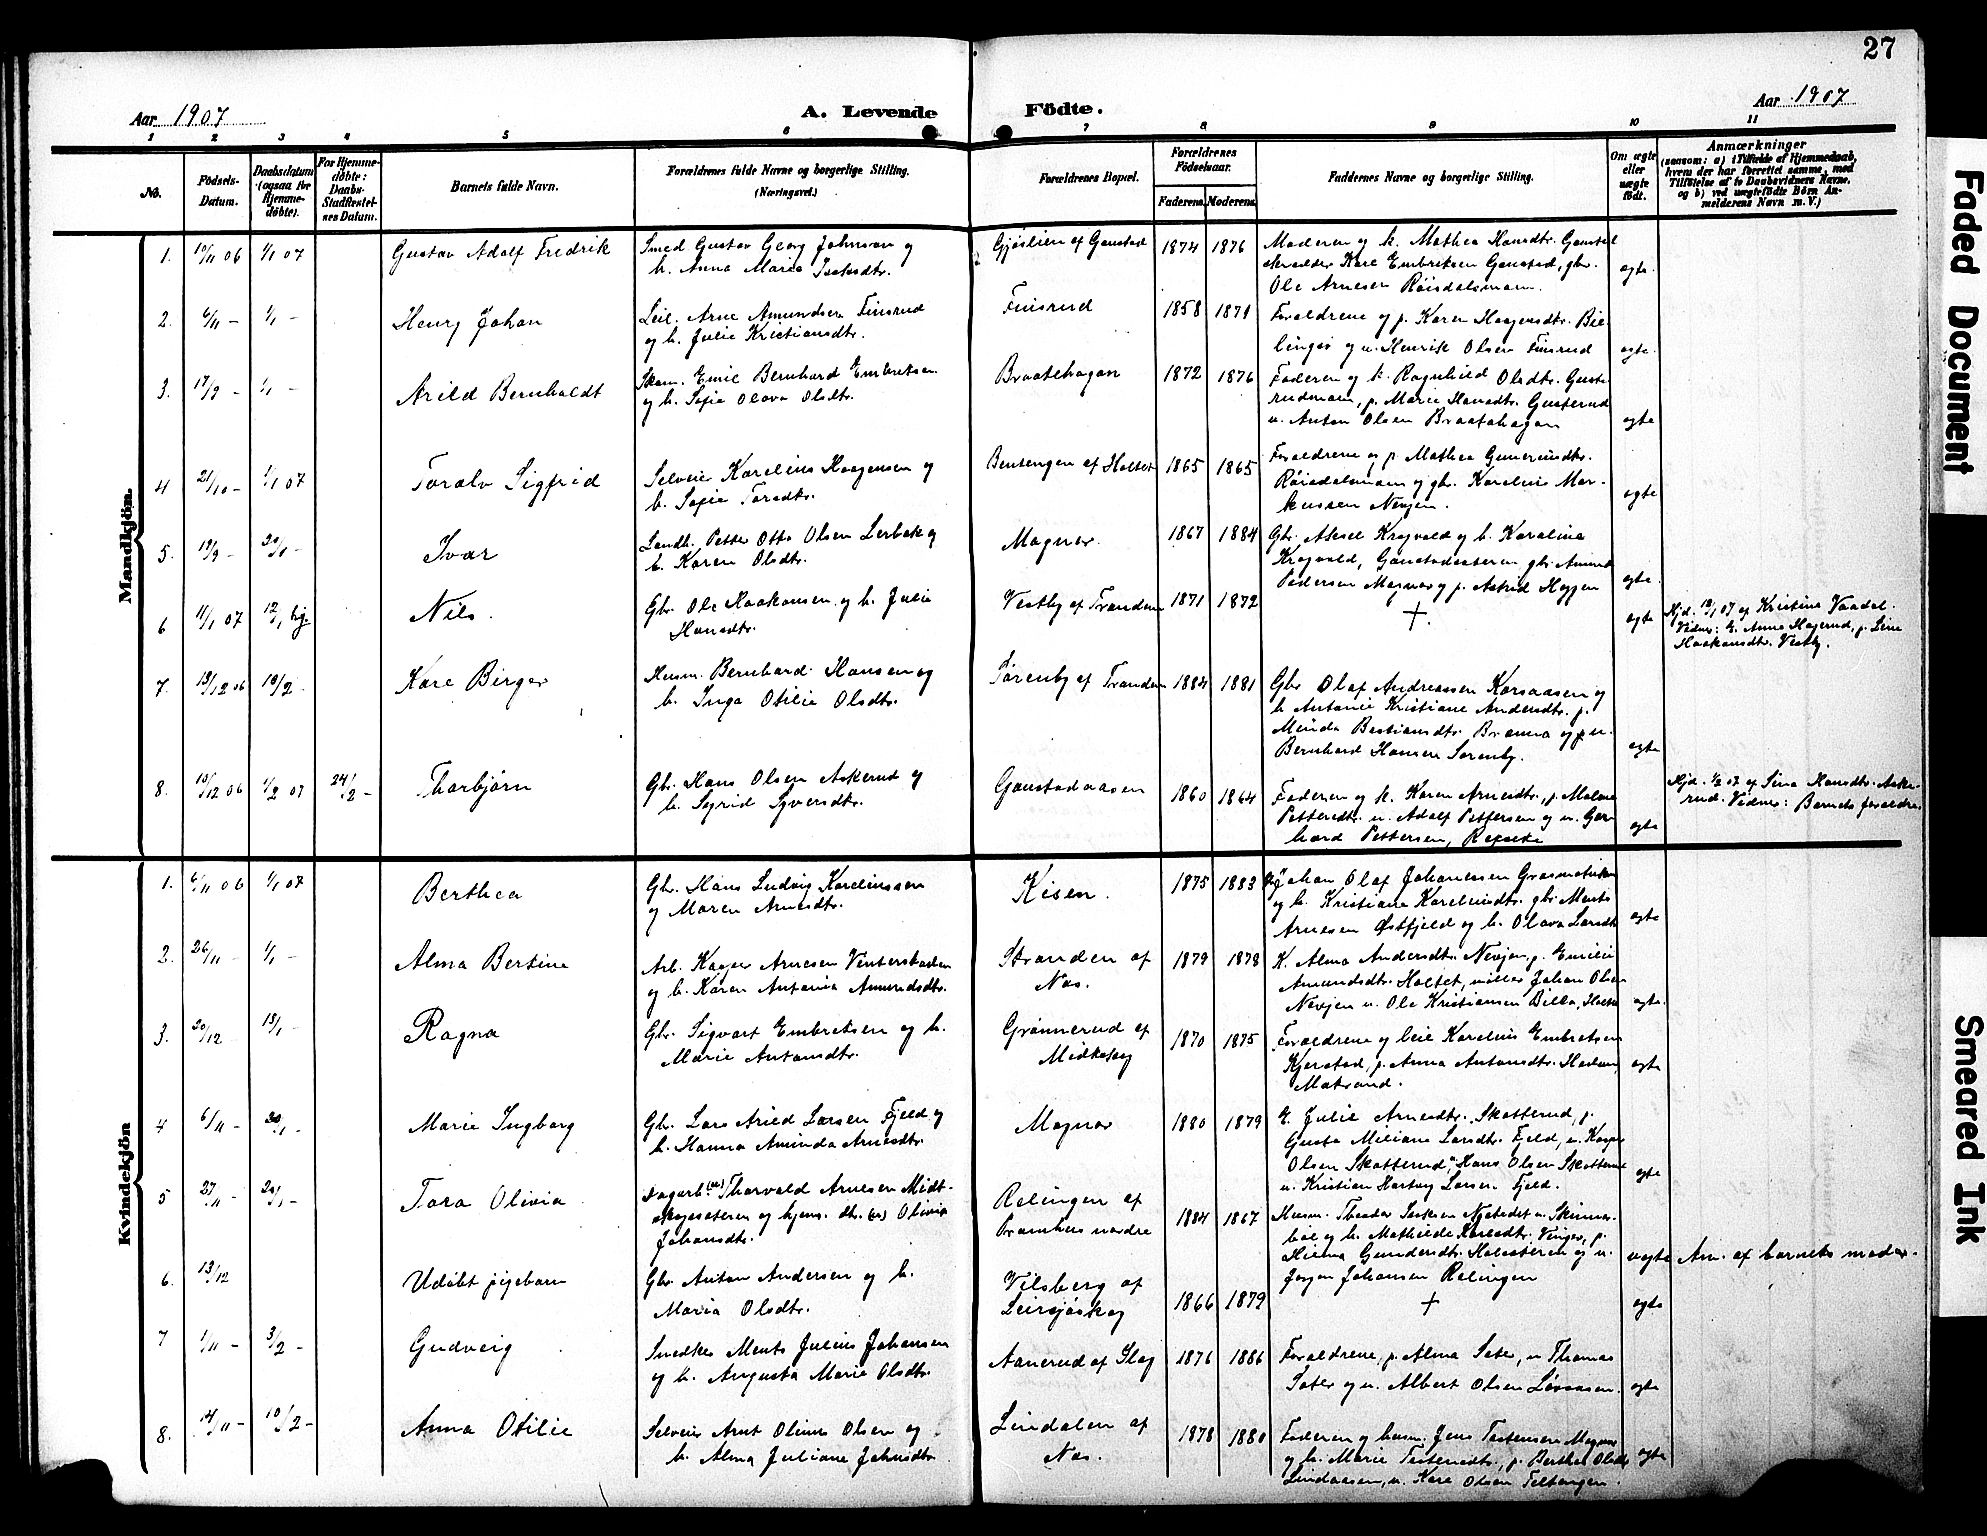 27
Aar 1907
A. Levende Födte.
Aar 1907
1 2 3 4 5 6 7 8 9 10 11
No.
Födsels-Datum.
Daabsdatum (ogsaa for Hjemmedöbte).
For Hjemmedöbte: Daabs-Stadfæstelsens Datum.
Barnets fulde Navn.
Forældrenes fulde Navne og borgerlige Stilling. (Næringsvei.)
Forældrenes Bopæl.
Forældrenes Födselsaar.
Faderens. Moderens.
Faddernes Navne og borgerlige Stilling.
Om ægte eller uægte födt.
Anmærkninger
(saasom: a) i Tilfælde af Hjemmedaab, hvem der har forrettet samme, med Tilföielse af to Daabsvidners Navne, og b) ved uægtefödte Börn Anmelderens Navn m. V.)
Mandkjön.
1. 10/11 06 1/1 07 Gustav Adolf Fredrik
Smed Gustav Georg Johnson og
h. Anna Marie Isaksdtr.
Gjöslien af Gaustad 1874 1876
Moderen og k. Mathea Hansdtr. Gaustad
Kare Embriksen Gaustad, gbr.
Ole Arnesen Röisdalsmoen.
egte.
2. 6/11 - 1/1 - Henry Johan
Leil. Arne Amundsen Finsrud
og h. Julie Kristiansdtr.
Finsrud 1858 1871
Foreldrene og p. Karen Haagensdtr.
og u. Henrik Olsen Finsrud
egte.
3. 17/9 - 1/1 - Arild Bernhaldt
Skom. Emil Bernhard Embretsen
og h. Sofie Olava Olsdtr.
Braatehagan 1872 1876
Faderen og k. Ragnhild Olsdtr. Guste-
rudmoen, p. Marie Hansdtr. Gusterud
u. Anton Olsen Braatehagan
egte
4 21/10 - 1/1 07 Toralv Sigfrid
Selveier Karelius Haagensen og
h. Sofie Toresdtr.
Bentengen af Holtet 1865 1865
Foreldrene og p. Mathea Guneriusdtr.
Röisdalsmoen og gbr. Karelius Mar-
kussen Nevjen.
egte
5. 19/9 - 20/1 - Ivar
Landh. Petter Otto Olsen Lerbak og
h. Karen Olsdtr.
Magnor. 1867 1884
Gbr. Aksel Krogvold og h. Karoline
Krogvold, Gaustadsæteren gbr. Amund
Pedersen Magnor og p. Astrid Heyjen
egte.
6 11/1 07 12/1 hj. Nils.
Gbr. Ole Haakonsen og h. Julie
Hansdtr.
Vestby af Tranden 1871 1872
+.
egte
Hjd. 12/1 07 af Kristine Vaadal.
Vidner: E. Anna Hagerud, p. Line
Haakonsdtr. Vestby.
7. 19/12 06 10/2 - Kåre Birger
Husm. Bernhard Hansen og
h. Inga Otilie Olsdtr.
Sørenby af Tranden 1884 1881
Gbr Olaf Andreassen Korsaasen og
h. Antonie Kristiane Andersdtr. p.
Minda Bastiansdtr. Bramra og u.
Bernhard Hansen Sørenby.
egte
8. 10/12 06 1/2 07 24/2 - Thorbjørn
Gbr. Hans Olsen Askerud og
h. Syrid Syversdtr.
Gaustadaasen 1860 1864
Faderen og k. Karen Arnesdtr. p. Malene
Pettersdtr. u. Adolf Pettersen og u. Ger-
hard Pettersen, Repsete
egte
Hjd. 1/2 07 af Lina Hansdtr. Aske-
rud. Vidner: Barnets foreldre
Kvindekjön
1. 6/11 06 1/1 07 Berthea
Gbr. Hans Ludvig Karelinssen
og Maren Arnesdtr.
Kisen. 1875 1883
Gbr Johan Olaf Johanessen Grasmobakken
og h. Kristiane Kareliusdtr. gbr. Ments
Arnesen Østfjeld og h. Olava Larsdtr
egte
2. 26/11 - 1/1 - Alma Bertine
Arb. Kasper Arnesen Vinterstaden
og h. Karen Antonia Amundsdtr.
Stranden af
Nas. 1879 1878
K. Alma Andersdtr. Nevjen, p. Emilie
Amundsdtr. Holtet, møller Johan Olsen
Nevjen u. Ole Kristiansen Billa, Holtet
egte.
3. 20/12 13/1 - Ragna
Gbr. Sigvart Embretsen og h.
Marie Antonsdtr.
Grønnerud af
Midtskog 1870 1875
Foreldrene og leil. Karelius Embretsen
Kjerstad, p. Anna Antonsdtr. Hedum
Matrand.
egte
4 6/11 - 20/1 - Marie Ingborg
Gbr. Lars Arild Larsen Fjeld og
h. Hanna Aminda Arnesdtr.
Magnor 1880 1879
E. Julie Arnesdtr. Skotterud, p.
Gusta Miliana Larsdtr. Fjeld, u. Kasper
Olsen Skotterud, Hans Olsen Skotterud
u. Kristian Hartvig Larsen Fjeld.
egte
5 27/11 - 20/1 - Tora Olivia
Dagarb. (u) Thorvald Arnesen Midt-
skogsæteren og hjem. dtr. (u) Olivia
Johansdtr.
Relingen af
Pramhus nordre 1884 1867
Husm. Theodor Isaksen Nystedet u. Skinnar-
böl og h. Mathilde Karlsdtr. Vinger, p.
Hilma Gundersdtr. Holsæteren og u.
Jørgen Johansen Relingen
uegte
Anv. af barnets moder.
6. 13/12 Udøbt pigebarn
Gbr Anton Andersen og h.
Maria Olsdtr.
Vilsberg af
Leirsjöskog 1866 1879
+
egte
7 1/11 - 3/2 - Gudveig
Snedker Ments Julius Johansen
og h. Augusta Marie Olsdtr.
Aanerud af Slag 1876 1886
Foreldrene, p. Alma Sater, u Thomas
Sater og u. Albert Olsen Løvaasen.
egte
8. 14/11 - 10/2 - Anna Otilie
Selveier Arnt Olinus Olsen og
h. Alma Juliane Johnsdtr
Lindalen af
Nas. 1878 1880
Faderen og husm. Jens Torstensen Magnor
og h. Marie Torstensdtr., p. Berthea Olsdtr
Lindaasen, u. Kare Olsen Teltangen.
egte
Faded Document
Smeared Ink